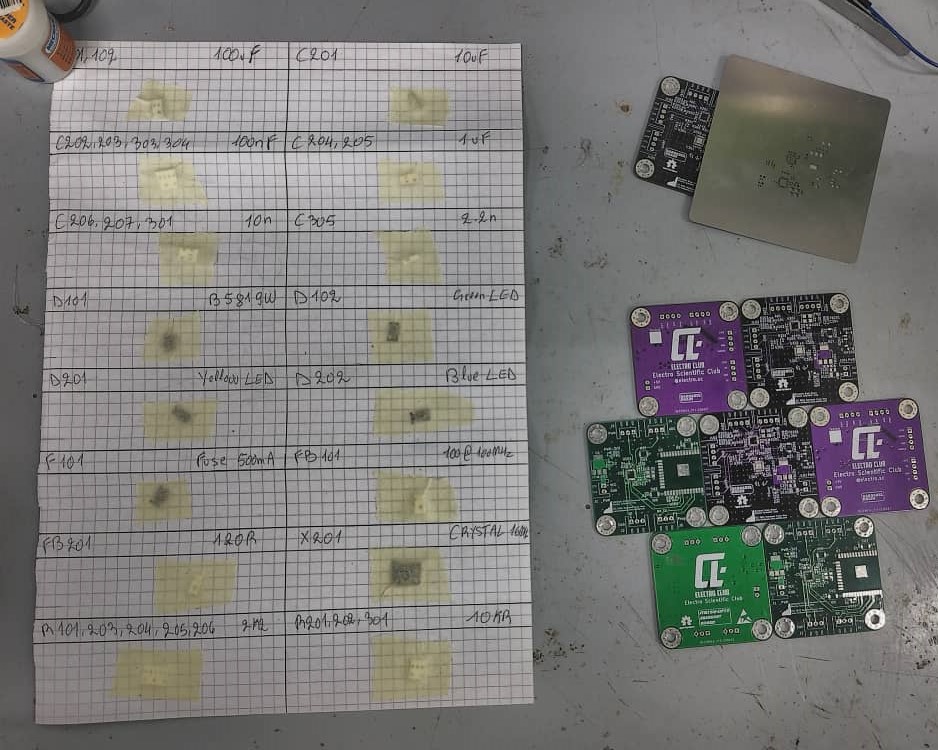 1,102 100uF C201 10uF
C202,203,303,304 100nF C204,205 1uF
C206,207,301 10n C305 2.2n
D101 B5819W D102 Green LED
D201 Yellow LED D202 Blue LED
F101 Fuse 500mA FB101 100@100MHz
FB201 120R X201 CRYSTAL
R101,203,204,205,206 R201,202,301 10KR
ELECTRO CLUB
Electro Scientific Club
@electro.sc
ELECTRO CLUB
Electro Scientific Club
@electro.sc
ELECTRO CLUB
Electro Scientific Club